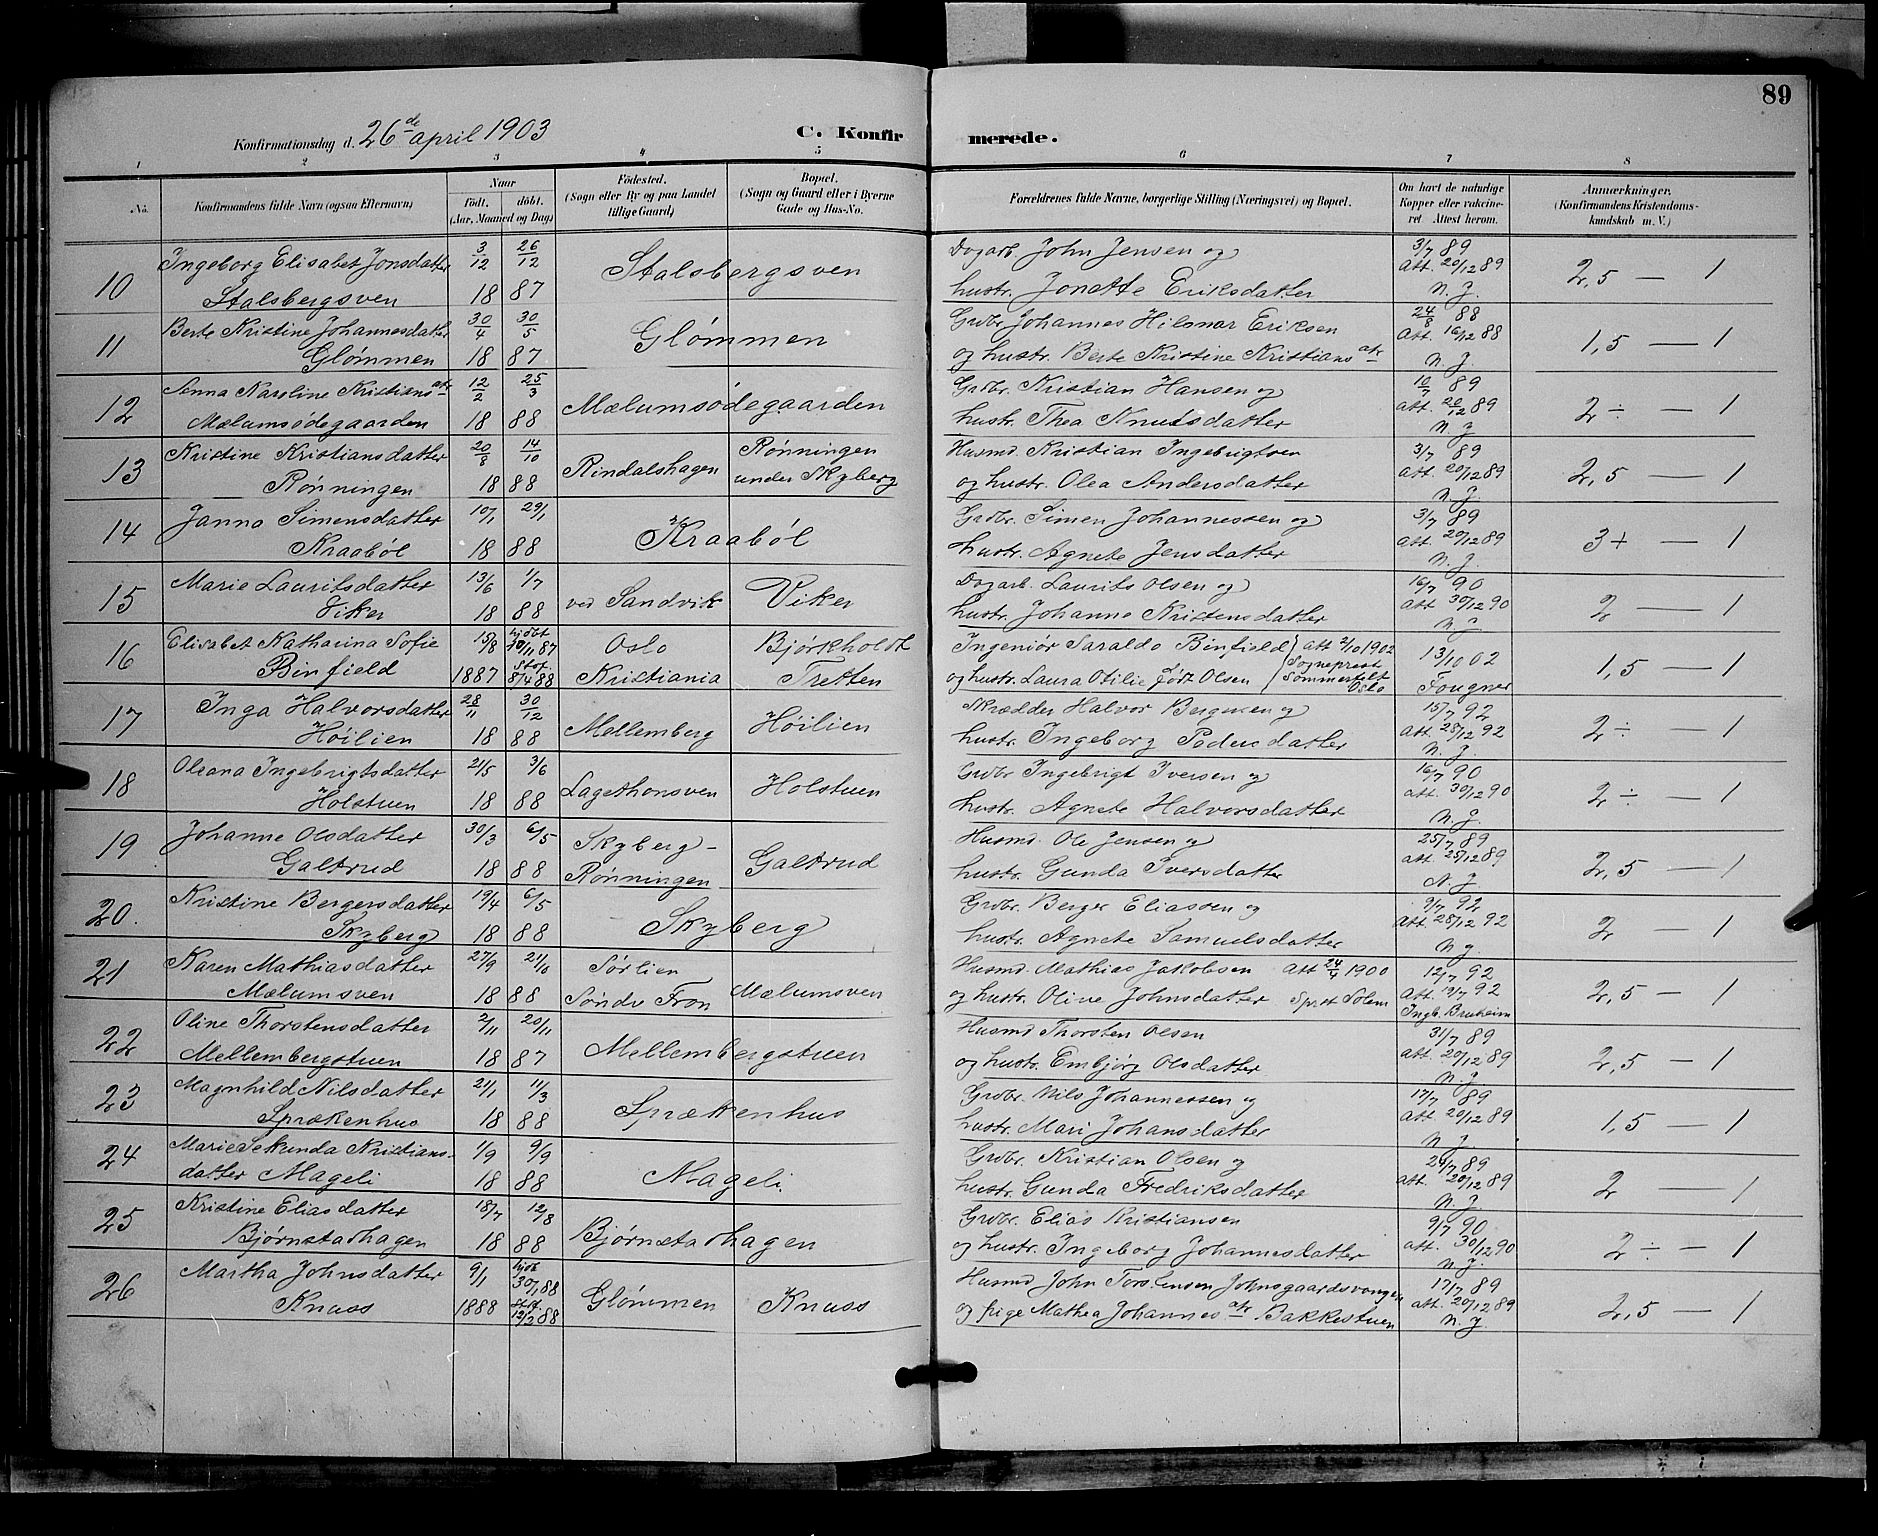 89
Konfirmationsdag d. 26de april 1903 C. Konfirmerede.
1 2 3 4 5 6 7 8
No. Konfirmandens fulde Navn (ogsaa Efternavn) Naar födt. döbt. (Aar, Maaned og Dag) Födested. (Sogn eller By og paa Landet tillige Gaard) Bopæl. (Sogn og Gaard eller i Byerne Gade og Hus-No. Forældrenes fulde Navne, borgerlige Stilling (Næringsvei) og Bopæl. Om havt de naturlige Kopper eller vakcineret. Attest herom. Anmærkninger. (Konfirmandens Kristendomskundskab m. V.)
10 Ingeborg Elisabet Jonsdatter 3/12 26/12 Stalsbergsven Dagarb. John Jensen og 3/7 89 att. 20/12 89 2,5 — 1
Stalsbergsven 18 87 hustr. Jonette Eriksdatter N. J.
11 Berte Kristine Johannesdatter 30/4 30/5 Glømmen Grdbr. Johannes Hilmar Eriksen 24/8 88 att. 16/12 88 1,5 — 1
Glømmen 18 87 og hustr. Berte Kristine Kristiansdtr N. J.
12 Anna Karoline Kristiansdtr 12/2 25/3 Mælumsødegaarden Grdbr. Kristian Hansen og 10/7 89 att. 20/12 89 2 ÷ — 1
Mælumsødegaarden 18 88 hustr. Thea Knudsdatter N. J
13 Kristine Kristiansdatter 20/8 14/10 Rindalshagen Rønningen under Skyberg Husmd. Kristian Ingebrigtsen 3/7 89 att. 20/12 89 2,5 — 1
Rønningen 18 88 og hustr. Olea Andersdatter N. J
14 Janna Simensdatter 10/1 29/1 Kraabøl Grdbr. Simen Johannessen og 3/7 89 att. 20/12 89 3+ — 1
Kraabøl 18 88 hustr. Agnete Jensdatter N. J.
15 Marie Lauritsdatter 13/6 1/7 ved Sandvik Viker Dagarb. Laurits Olsen og 16/7 90 att 30/12 90 2 — 1
Viker 18 88 hustr. Johanne Kristensdatter N. J.
16 Elisabet Katharina Sofie 15/8 hjdøbt 30/11 87 Oslo Bjørkholdt Ingeniør Saraldo Binfield att 2/10 1902 13/10 02 1,5 — 1
Binfield 1887 Staf. 8/4 88 Kristiania Tretten og hustr. Laura Otilie født Olsen Sogneprest Sommerfelt Oslo Fougner
17 Inga Halvorsdatter 28/11 30/12 Mellemberg Høilien Skrædder Halvor Bergesen og 15/7 92 att. 28/12 92 2 ÷ — 1
Høilien 18 88 hustr. Ingeborg Pedersdatter N. J.
18 Oleana Ingebrigtsdatter 21/5 3/6 Lagethonsven Holstuen Grdbr Ingebrigt Iversen og 16/7 90 att. 30/12 90 2 ÷ — 1
Holstuen 18 88 hustr. Agnete Halvorsdatter N. J.
19 Johanne Olsdatter 30/3 6/5 Skyberg- Galtrud Husmd. Ole Jensen og 25/7 89 att. 25/12 89 2,5 — 1
Galtrud 18 88 Rønningen hustr. Gunda Iversdatter N. J
20. Kristine Bergersdatter 19/4 6/5 Skyberg Grdbr. Berger Eliassen og 9/7 92 att. 28/12 92 2 — 1
Skyberg 18 88 hustr. Agnete Samuelsdatter N J
21 Karen Mathiasdatter 27/9 21/10 Sørlien Mælumsven Husmd. Mathias Jakobsen att 24/4 1900 12/7 92 att. 19/7 92 2,5 — 1
Mælumsven 18 88 Søndr Fron og hustr. Oline Johnsdatter Sprst Solem Ingb. Bruheim
22 Oline Thorstensdatter 2/11 20/11 Mellembergstuen Husmd Thorsten Olsen 31/7 89 att. 20/12 89 2,5 — 1
Mellembergstuen 18 87 og hustr. Embjørg Olsdatter N J
23 Magnhild Nilsdatter 21/1 11/3 Sprækenhus Grdbr. Nils Johannessen og 17/7 89 att. 20/12 89 1,5 — 1
Sprækenhus 18 88 hustr. Mari Johansdatter N J.
24 Marie Sekunda Kristians- 1/9 9/9 Mageli. Grdbr. Kristian Olsen og 24/7 89 att. 20/12 89 2 — 1
datter Mageli 18 88 hustr. Gunda Fredriksdatter N. J.
25 Kristine Eliasdatter 18/7 12/8 Bjørnstadhagen Grdbr. Elias Kristiansen 9/7 90 att. 30/12 90 2 ÷ — 1
Bjørnstadhagen 18 88 og hustr. Ingeborg Johannesdatter N. J.
26 Martha Johnsdatter 9/1 hjdb 30/1 88 Glømmen Knuss Husmd John Torstensen Johnsgaardsvangen 17/7 89 att. 20/12 89 2,5 — 1
Knuss 1888 Stf. 12/3 88 og pige Mathea Johannesdtr Bakkestuen N. J.